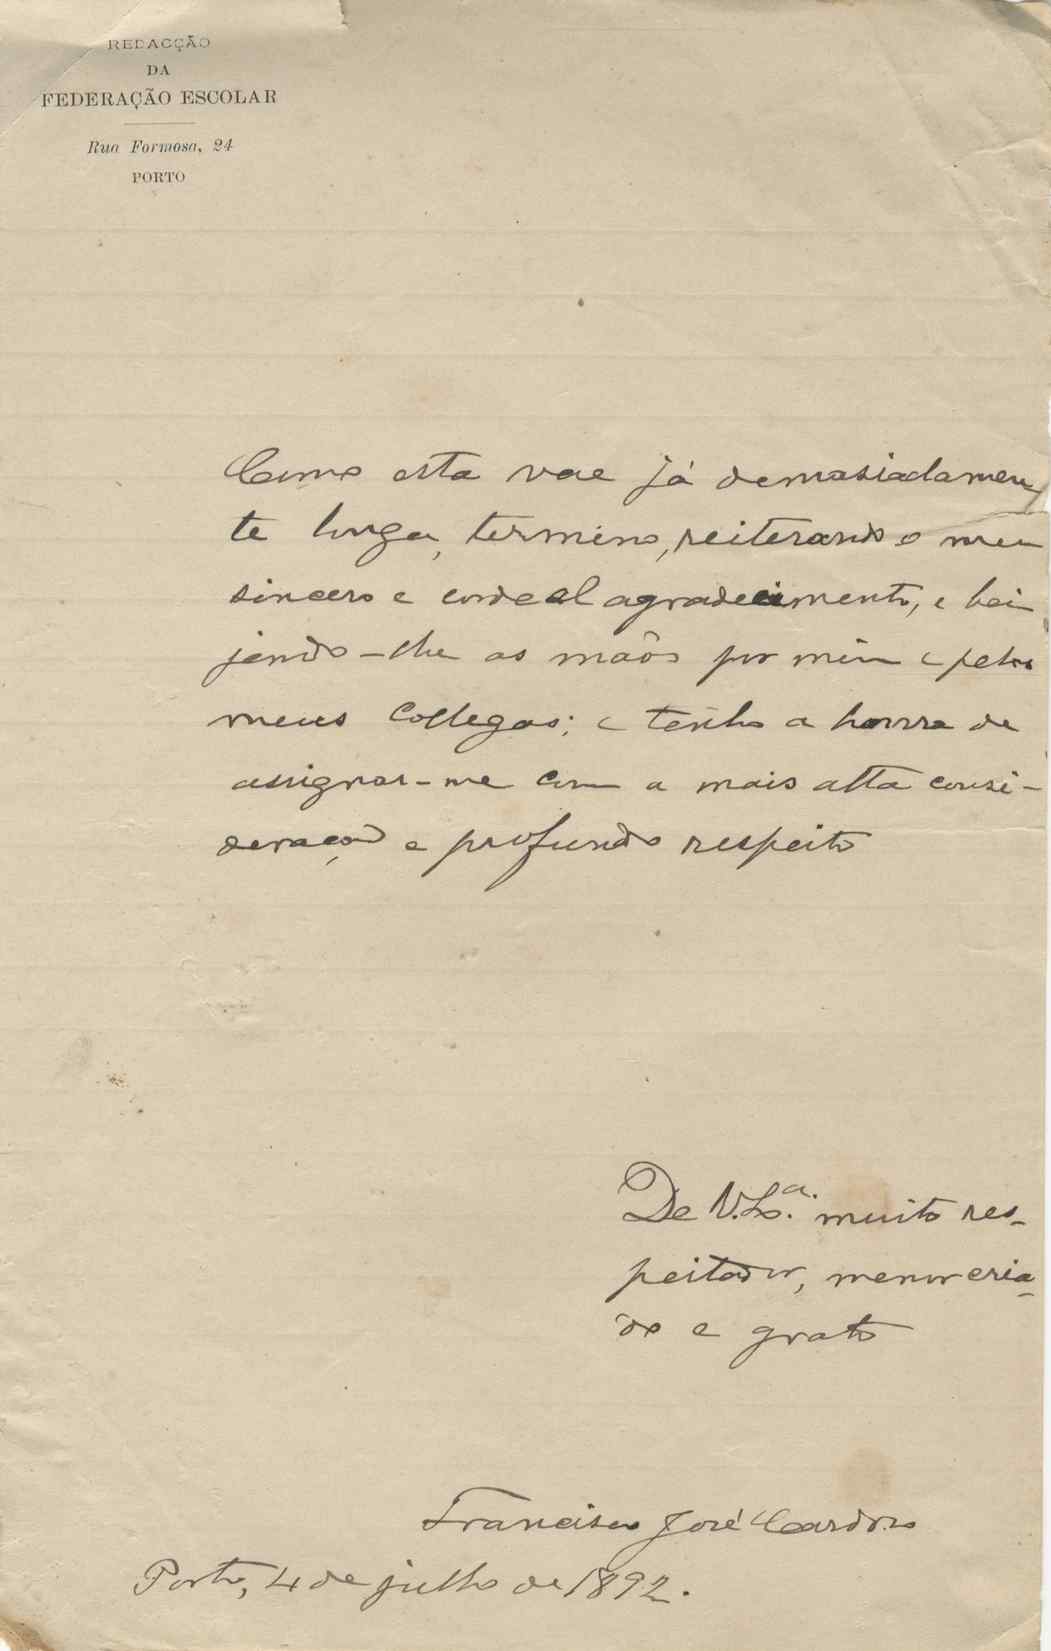 REDACÇÃO
DA
FEDERAÇÃO ESCOLAR
Rua Formosa, 24
PORTO
Como esta vae já demasiadamen
te longa, termino, reiterando o meu
sincero e cordeal agradecimento, e bei
jando-lhe as mãos por mim e pelos
meus collegas; e tenho a honra de
assignar-me com a mais alta consi-
deração e profundo respeito
De V. Ex.ª muito res-
peitador, menor cria-
do e grato
Francisco José Cardoso
Porto, 4 de julho de 1892.